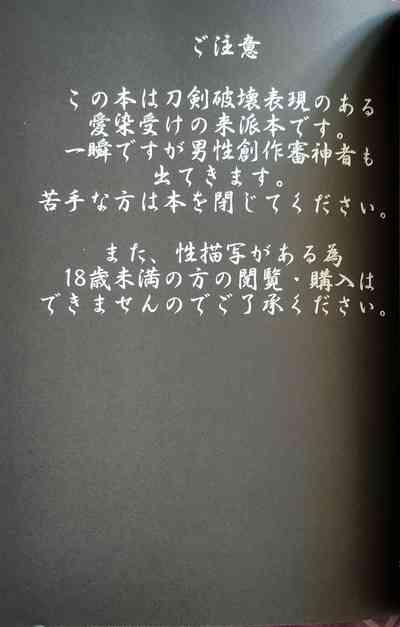 ご注意
この本は刀剣破壊表現のある
愛染受けの来派本です。
一瞬ですが男性創作審神者も
出てきます。
苦手な方は本を閉じてください。
また、性描写がある為
18歳未満の方の閲覧・購入は
できませんのでご了承ください。